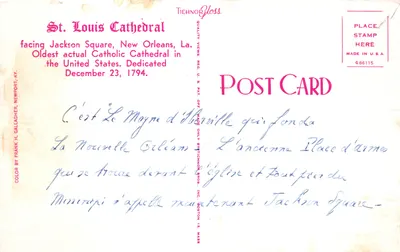 ThermoGloss
St. Louis Cathedral
facing Jackson Square, New Orleans, La.
Oldest actual Catholic Cathedral in
the United States. Dedicated
December 23, 1794.
PLACE
STAMP
HERE
MADE IN U.S.A.
POST CARD
COLOR BY FRANK H. GALLAGHER, NEWPORT, KY.
C'est Le Moyne d'Iberville qui fonda
La Nouvelle Orléans. L'ancienne Place d'armes
qui se trouve devant l'Église et tout près du
Mississipi s'appelle maintenant Jackson Square.